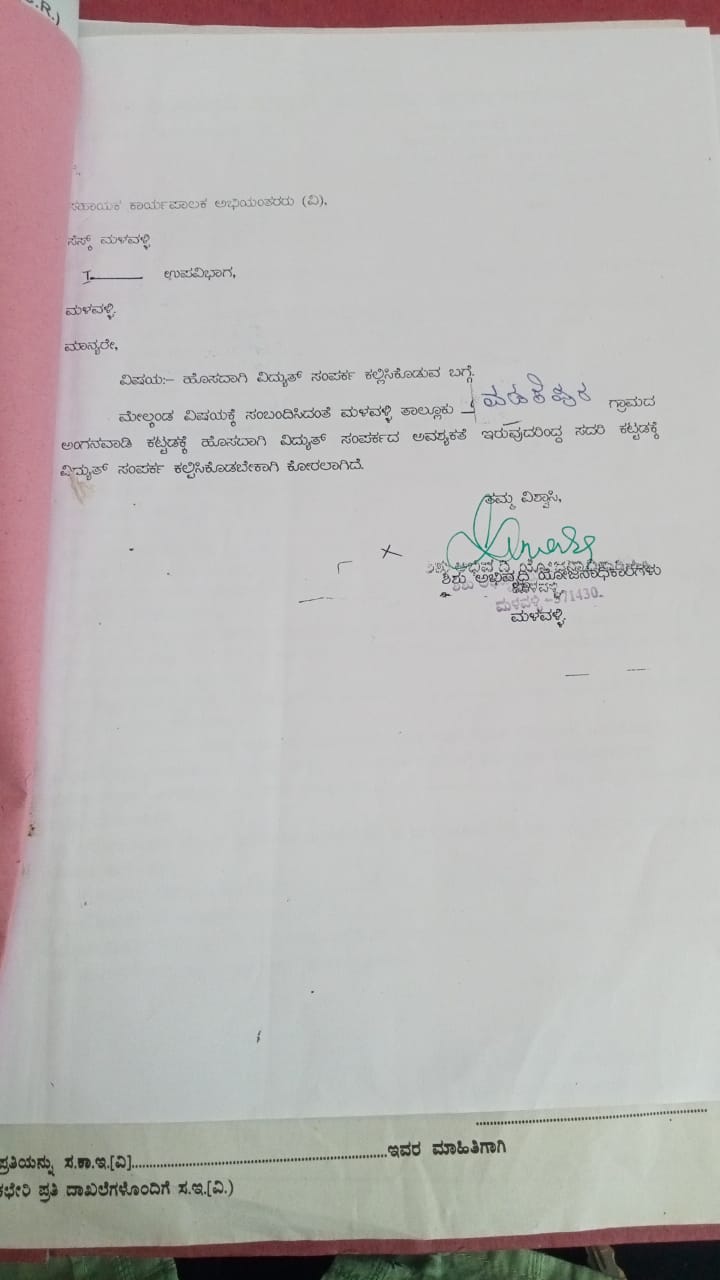 .R.)
ಸಹಾಯಕ ಕಾರ್ಯಪಾಲಕ ಅಭಿಯಂತರರು (ವಿ).
ಸೆಸ್ಕ್ ಮಳವಳ್ಳಿ
I ಉಪವಿಭಾಗ,
ಮಳವಳ್ಳಿ.
ಮಾನ್ಯರೇ,
ವಿಷಯ:- ಹೊಸದಾಗಿ ವಿದ್ಯುತ್ ಸಂಪರ್ಕ ಕಲ್ಪಿಸಿಕೊಡುವ ಬಗ್ಗೆ.
ಮೇಲ್ಕಂಡ ವಿಷಯಕ್ಕೆ ಸಂಬಂದಿಸಿದಂತೆ ಮಳವಳ್ಳಿ ತಾಲ್ಲೂಕು ಗ್ರಾಮದ
ಅಂಗನವಾಡಿ ಕಟ್ಟಡಕ್ಕೆ ಹೊಸದಾಗಿ ವಿದ್ಯುತ್ ಸಂಪರ್ಕದ ಅವಶ್ಯಕತೆ ಇರುವುದರಿಂದ್ದ ಸದರಿ ಕಟ್ಟಡಕ್ಕೆ
ವಿದ್ಯುತ್ ಸಂಪರ್ಕ ಕಲ್ಪಿಸಿಕೊಡಬೇಕಾಗಿ ಕೋರಲಾಗಿದೆ.
ತಮ್ಮ ವಿಶ್ವಾಸಿ,
ಶಿಶು ಅಭಿವೃದ್ಧಿ ಯೋಜನಾಧಿಕಾರಿಗಳು
ಮಳವಳ್ಳಿ -571430.
ಮಳವಳ್ಳಿ.
ಪ್ರತಿಯನ್ನು ಸ.ಕಾ.ಇ.[ವಿ]..........ಇವರ ಮಾಹಿತಿಗಾಗಿ
ಕಛೇರಿ ಪ್ರತಿ ದಾಖಲೆಗಳೊಂದಿಗೆ ಸ.ಇ.[ವಿ.)